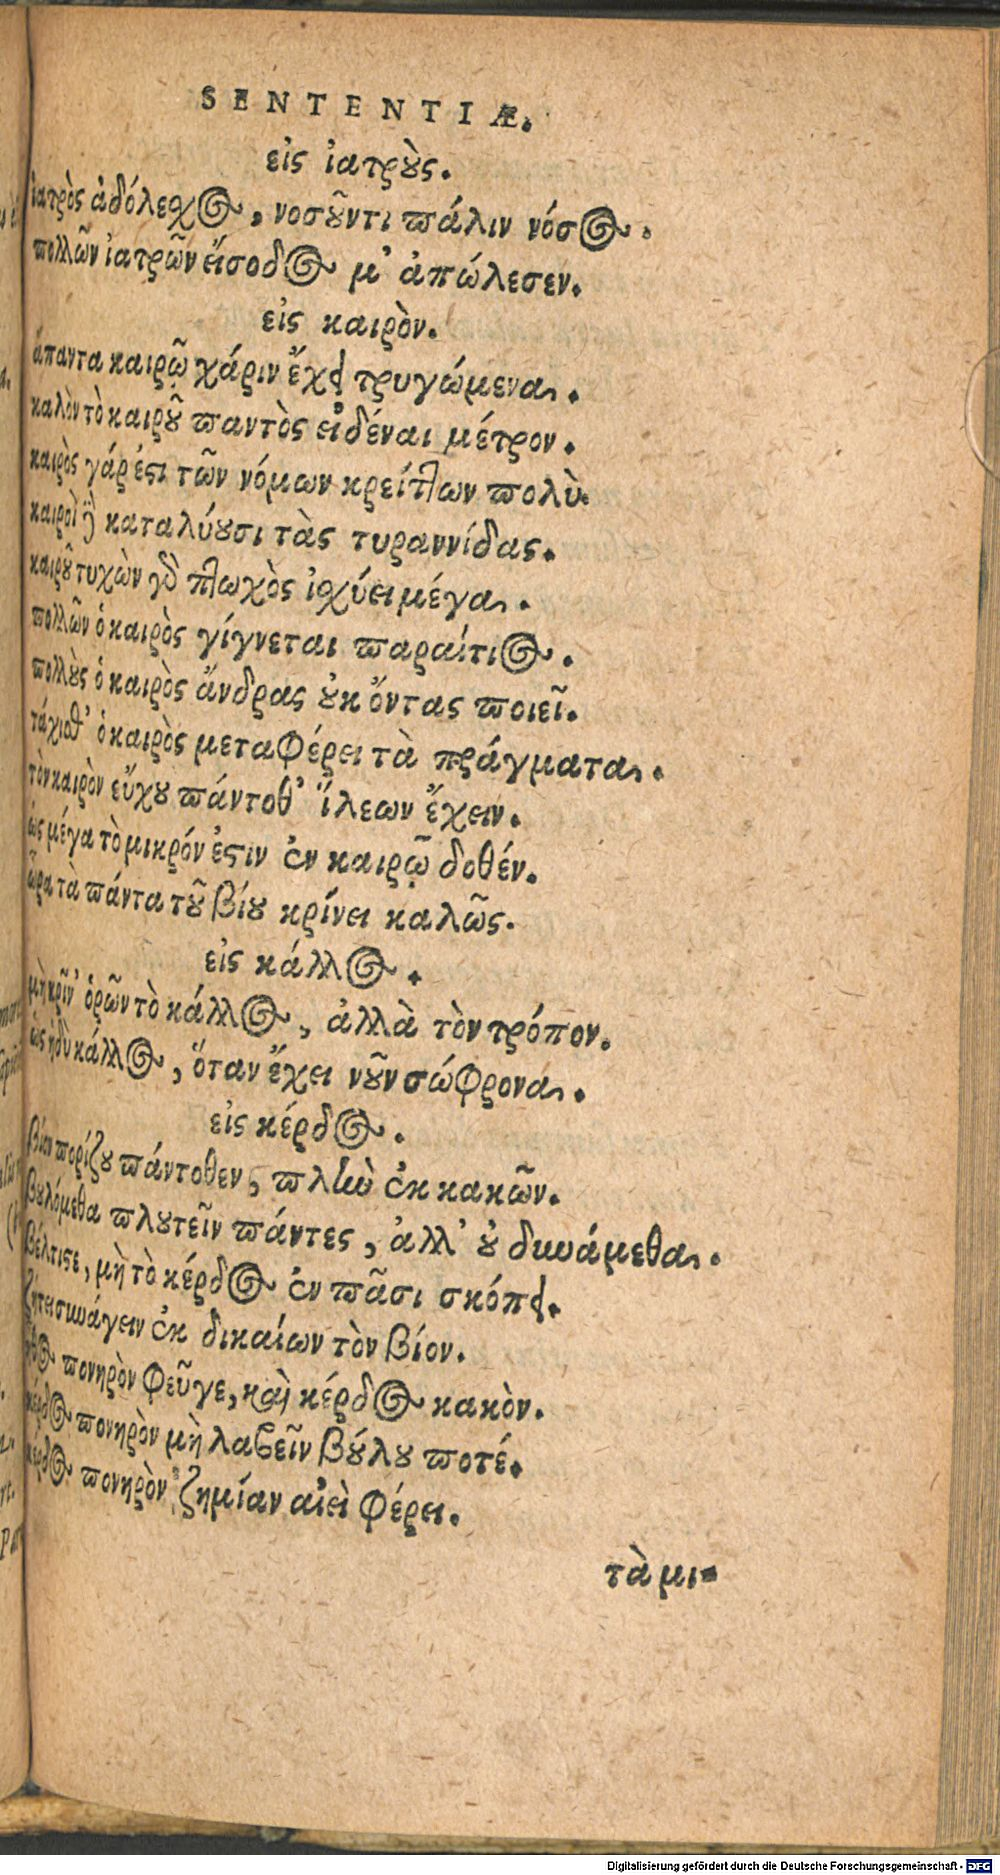 SENTENTIÆ.
εἰς ἰατρȣ̀ς.
ἰατρὸς ἀδόλεχος, νοσȣ̃ντι πάλιν νόσος.
πολλῶν ἰατρῶν εἴσοδος μ' ἀπώλεσεν.
εἰς καιρὸν.
ἅπαντα καιρῷ χάριν ἔχει τρυγώμενα.
καλὸν τὸ καιρȣ̃ παντὸς εἰδέναι μέτρον.
καιρὸς γάρ ἐϛι τῶν νόμων κρείττων πολὺ.
καιροὶ δὲ καταλύȣσι τὰς τυραννίδας.
καιρȣ̃ τυχὼν γὸ πτωχὸς ἰσχύει μέγα.
πολλῶν ὁ καιρὸς γίγνεται παραίτιος.
πολλȣ̀ς ὁ καιρὸς ἄνδρας ȣ̓κ ὄντας ποιεῖ.
τάχισθ' ὁ καιρὸς μεταφέρει τὰ πράγματα.
τὸν καιρὸν εὔχȣ πάντοθ' ἵλεων ἔχειν.
ὡς μέγα τὸ μικρόν ἐϛιν ἐν καιρῷ δοθέν.
ὥρα τὰ πάντα τȣ̃ βίȣ κρίνει καλῶς.
εἰς κάλλος.
μὴ κρῖν' ὁρῶν τὸ κάλλος, ἀλλὰ τὸν τρόπον.
ὡς ἡδὺ κάλλος, ὅταν ἔχει νȣ̃ν σώφρονα.
εἰς κέρδος.
βίον πορίζȣ πάντοθεν, πλὴν ἐκ κακῶν.
βȣλόμεθα πλȣτεῖν πάντες, ἀλλ' ȣ̓ δυνάμεθα.
βέλτιϛε, μὴ τὸ κέρδος ἐν πᾶσι σκόπει.
ζήτει συνάγειν ἐκ δικαίων τὸν βίον.
πονηρὸν φεῦγε, καὶ κέρδος κακὸν.
κέρδος πονηρὸν μὴ λαβεῖν βȣ́λȣ ποτέ.
κέρδος πονηρὸν ζημίαν αἰεὶ φέρει.
τὰ μι-
Digitalisierung gefördert durch die Deutsche Forschungsgemeinschaft - DFG